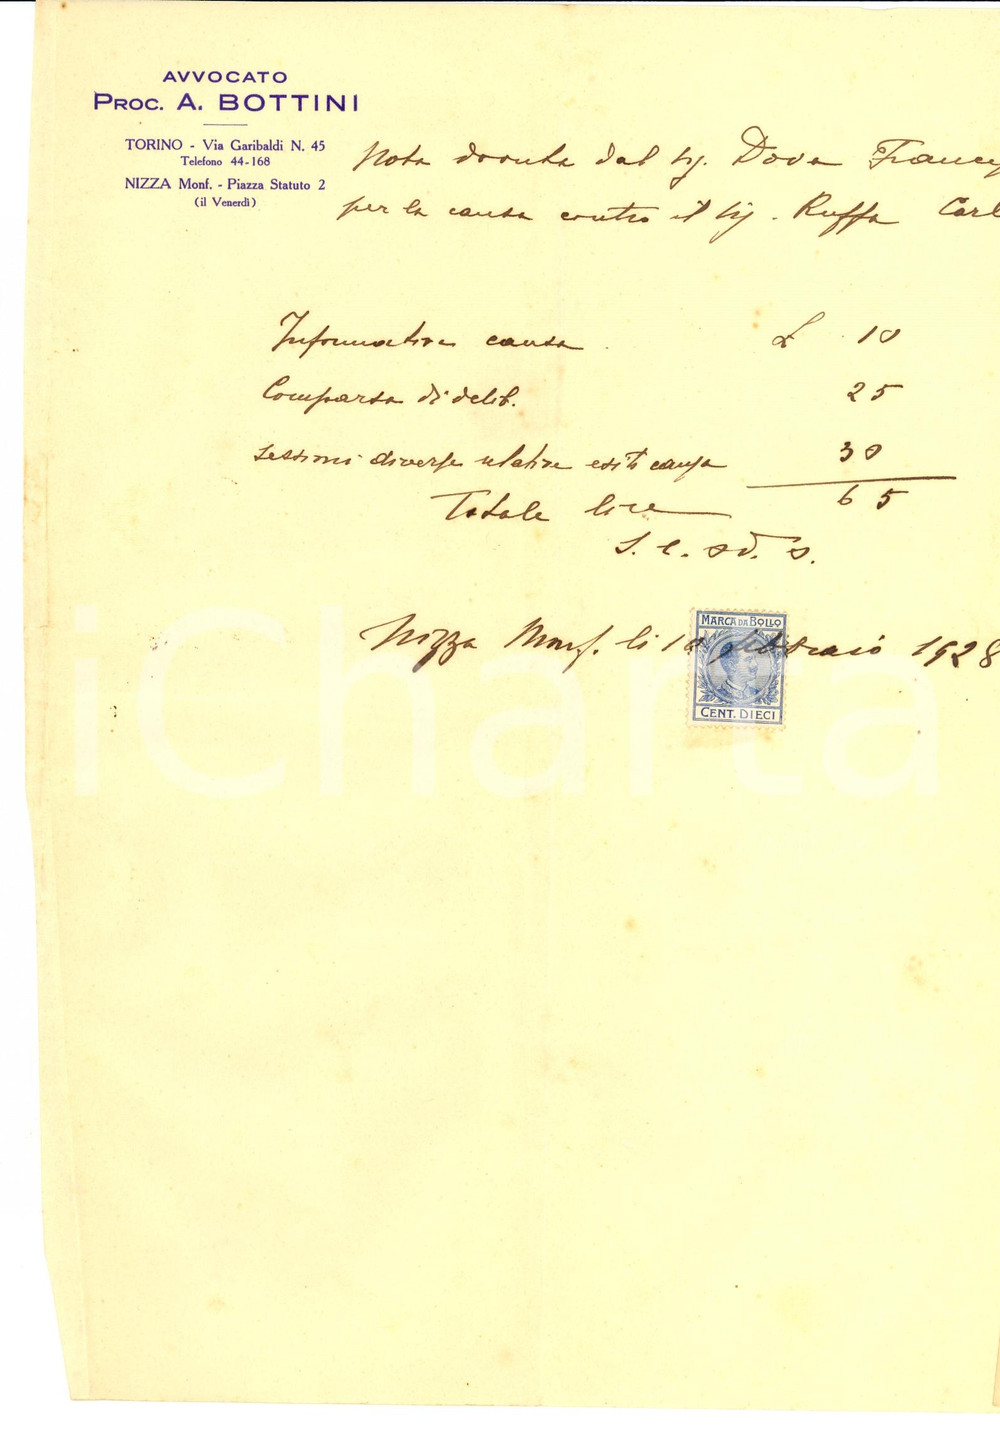 AVVOCATO
PROC. A. BOTTINI
TORINO - Via Garibaldi N. 45
Telefono 44-168
NIZZA Monf. - Piazza Statuto 2
(il Venerdì)
Nota dovuta dal Sig. Dova Franc
per la causa contro il Sig. Ruffa Carl
Informativa causa £ 10
Comparsa di delib. 25
sessioni diverse relative esiti causa 30
Totale lire 65
S. e. od. o.
Nizza Monf. li 10 febbraio 1928
MARCA DA BOLLO
CENT. DIECI
iCharta